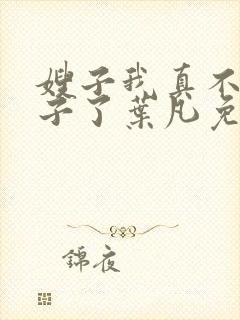 嫂子我真不
子了葉凡免
錦夜